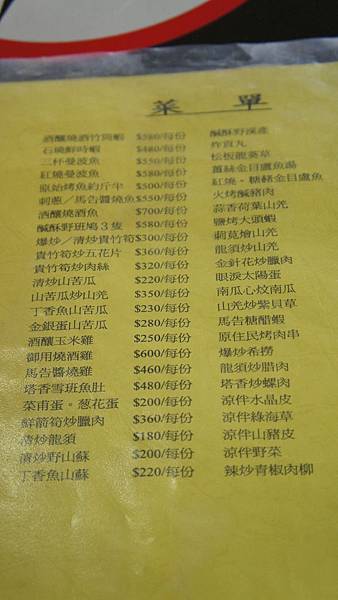 菜 單
酒釀燒酒竹筒蝦 $580/每份 鹹酥野溪產
石燒鮮時蝦 $480/每份 炸貢丸
三杯曼波魚 $550/每份 松板龍葵草
紅燒曼波魚 $580/每份 薑絲金目鱸魚湯
原始烤魚約斤半 $500/每份 紅燒、糖醋金目鱸魚
刺蔥/馬告醬燒魚 $550/每份 火烤鹹豬肉
酒釀燒酒魚 $700/每份 蒜香荷葉山羌
鹹酥野斑鳩3隻 $580/每份 鹽烤大頭蝦
爆炒/清炒貴竹筍 $300/每份 刺莧燴山羌
貴竹筍炒五花片 $360/每份 龍鬚炒山羌
貴竹筍炒肉絲 $320/每份 金針花炒臘肉
清炒山苦瓜 $220/每份 眼淚太陽蛋
山苦瓜炒山羌 $350/每份 南瓜心炆南瓜
丁香魚山苦瓜 $230/每份 山羌炒紫貝草
金銀蛋山苦瓜 $280/每份 馬告糖醋蝦
酒釀玉米雞 $250/每份 原住民烤肉串
御用燒酒雞 $600/每份 爆炒希撈
馬告醬燒雞 $460/每份 龍鬚炒腊肉
塔香雪班魚肚 $480/每份 塔香炒螺肉
菜甫蛋。葱花蛋 $200/每份 涼伴水晶皮
鮮箭筍炒臘肉 $360/每份 涼伴綠海草
清炒龍須 $180/每份 涼伴山豬皮
清炒野山蘇 $200/每份 涼伴野菜
丁香魚山蘇 $220/每份 辣炒青椒肉柳